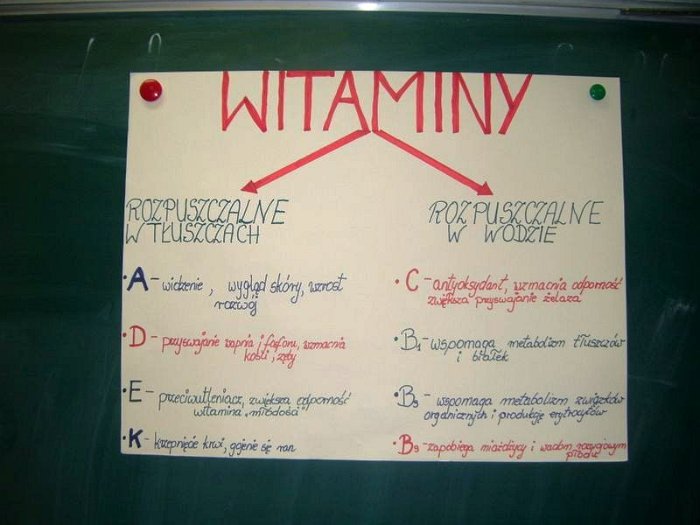 WITAMINY
ROZPUSZCZALNE
W TŁUSZCZACH
• A - widzenie, wygląd skóry, wzrost
rozwój
• D - przyswajanie wapnia i fosforu, wzmacnia
kości i zęby
• E - przeciwutleniacz, zwiększa odporność
witamina „młodości”
• K - krzepnięcie krwi, gojenie się ran
ROZPUSZCZALNE
W WODZIE
• C - antyoksydant, wzmacnia odporność
zwiększa przyswajanie żelaza
• B1 - wspomaga metabolizm tłuszczów
i białek
• B5 - wspomaga metabolizm związków
organicznych i produkcję erytrocytów
• B9 - zapobiega miażdżycy i wadom rozwojowym
płodu